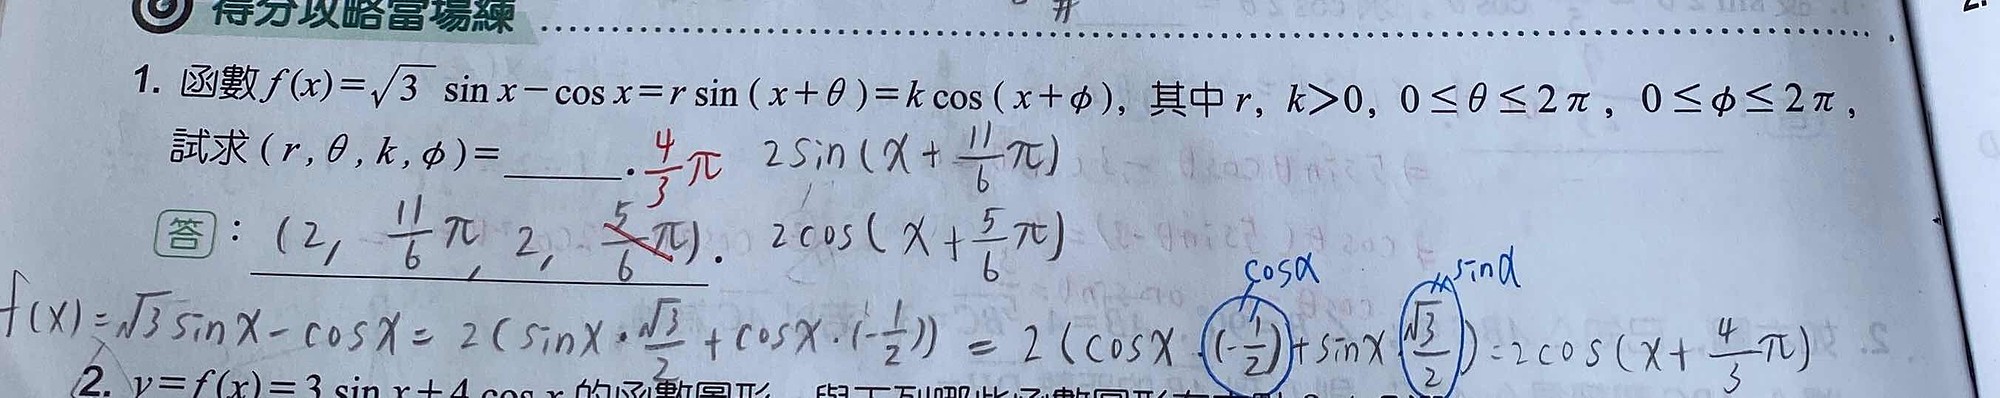 得分攻略當場練
1. 函數 f(x)=√3 sin x−cos x=r sin (x+θ)=k cos (x+φ), 其中 r, k>0, 0≤θ≤2π, 0≤φ≤2π,
試求 (r, θ, k, φ)=______. 4/3 π 2sin(x+11/6 π)
答: (2, 11/6 π, 2, 5/6 π). 2cos(x+5/6 π)
cosα sinα
f(x)=√3 sinx−cosx=2(sinx·√3/2+cosx·(-1/2))=2(cosx·(-1/2)+sinx·√3/2)=2cos(x+4/3 π)
2. y=f(x)=3 sin x+4 cos x 的函數圖形